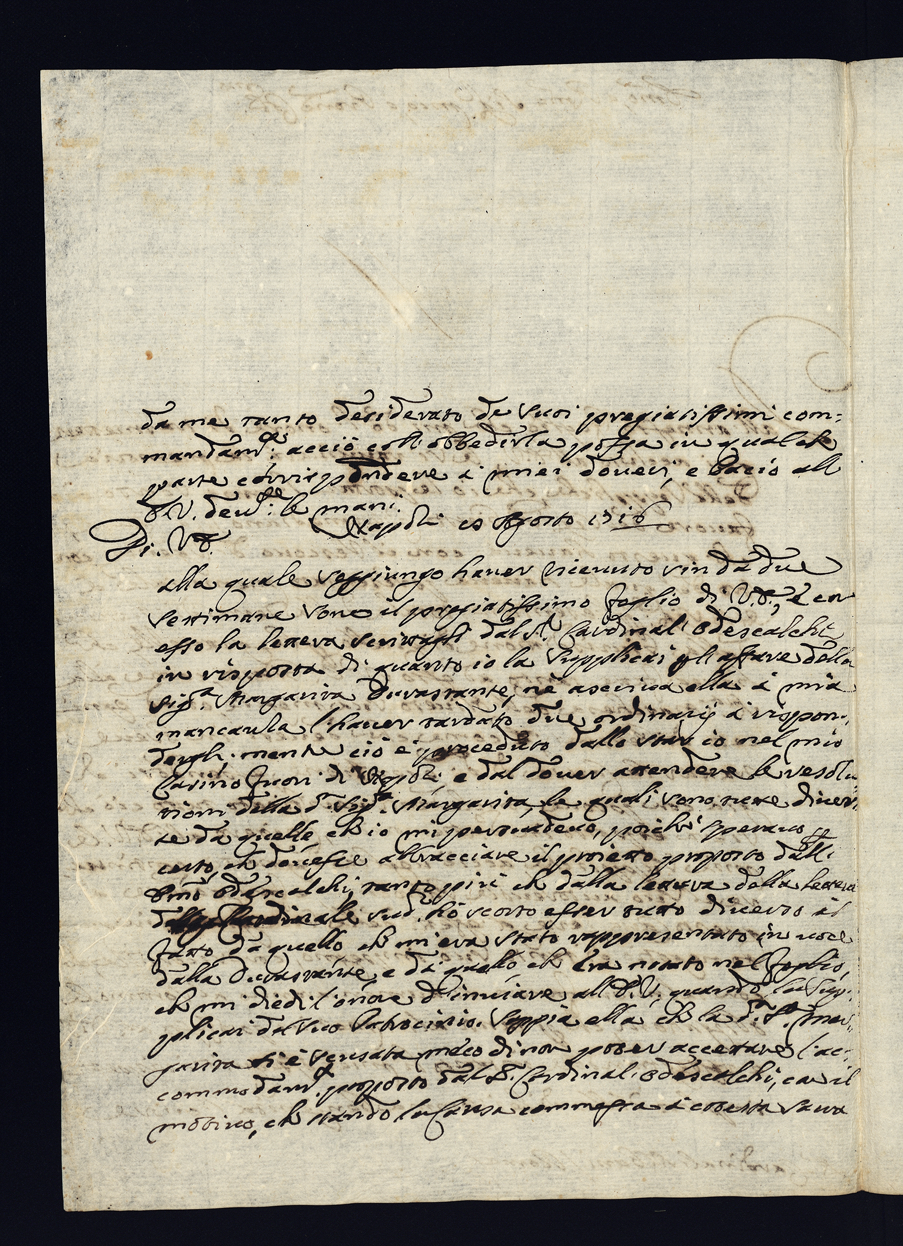 da me tanto desiderato de suoi pregiatissimi com=
mandam.ti acciò coll obbedirla possa in qualche
parte corrispondere à miei doveri, e bacio all
V. dev.te le mani.
Napoli 10 Agosto 1716
Di. V.E.
alla quale soggiungo haver ricevuto sin da due
settimane sono il pregiatissimo foglio di V.E., e con
esso la lettera scrittagli dal S.r Cardinal Odescalchi
in risposta di quanto io la supplicai p gl'affare della
Sig.ra Margarita Durastante, nè ascriva ella à mia
mancanza l'haver tardato due ordinarij à rispon=
dergli, mentre ciò è proceduto dallo star io nel mio
Casino fuori di Napoli e dal dover attendere le resolu
tioni della d.a Sig.ra Margarita, le quali sono state diver
se da quelle ch'io mi persuadevo, poiche speravo p
certo, ch dovesse abbracciare il progetto proposto dall
Em.o Odescalchi, tanto più ch dalla lettera della
Cardinale sud.o hò scorto esser tutto diverso il
fatto da quello ch m'era stato rappresentato in voce
dalla Durastante, e da quello ch era notato nel foglio,
ch mi diedi l'onore d'inviare all V. quando la sup=
plicai del suo Patrocinio. Sappia ella ch la d.a S.ra Mar=
garita si è scusata meco di non poter accettare l'ac=
commodam.to proposto dal S.r Cardinal Odescalchi, con il
motivo, ch stando la Causa commessa à cotesta Sacra